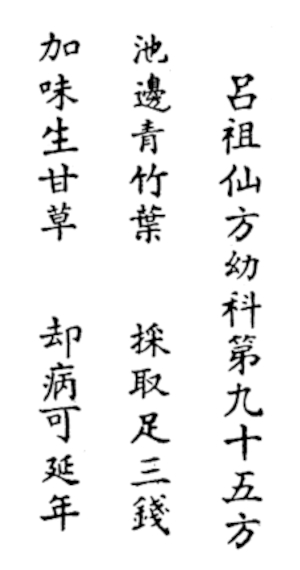 呂祖仙方幼科第九十五方
池邊青竹葉　採取足三錢
加味生甘草　却病可延年